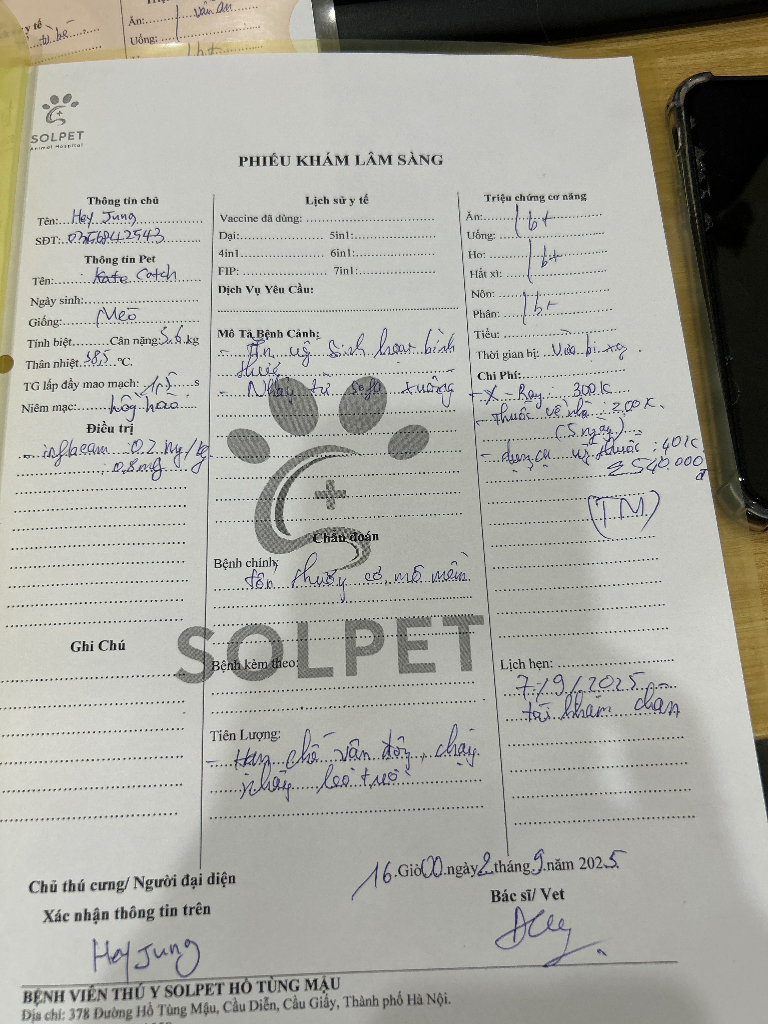 y tế
Ăn:
Uống:
bt
SOLPET
Animal Hospital
PHIẾU KHÁM LÂM SÀNG
Thông tin chủ
Tên: Hey Jung
SĐT: 0356842543
Thông tin Pet
Tên: Kate Catch
Ngày sinh:
Giống: Mèo
Tính biệt Cân nặng: 5.6 kg
Thân nhiệt: 38,5 °C.
TG lấp đầy mao mạch: 1,5 s
Niêm mạc: hồng hào
Điều trị
: 0.2 mg/kg
: 0,8 mg
Ghi Chú
Lịch sử y tế
Vaccine đã dùng:
Dại: 5in1:
4in1 6in1:
FIP: 7in1:
Dịch Vụ Yêu Cầu:
Mô Tả Bệnh Cảnh:
- Ăn uống sinh hoạt bình
thường
- Nhảy từ sofa xuống
Chẩn đoán
Bệnh chính:
tổn thương cơ, mô mềm
SOLPET
Bệnh kèm theo:
Tiên Lượng:
- Hạn chế vận động, chạy
nhảy leo trèo
Triệu chứng cơ năng
Ăn: bt
Uống:
Ho: bt
Hắt xì:
Nôn: bt
Phân:
Tiểu:
Thời gian bị: Vừa bị xg
Chi Phí:
- X-Ray : 300K
- thuốc về nhà : 200K.
(5 ngày)
- dụng cụ uống thuốc : 40K
540.000đ
(TM)
Lịch hẹn:
7/9/2025
tái khám chân
16 Giờ 00 ngày 2 tháng 9 năm 2025
Chủ thú cưng/ Người đại diện
Xác nhận thông tin trên
Hey Jung
Bác sĩ/ Vet
BỆNH VIỆN THÚ Y SOLPET HỒ TÙNG MẬU
Địa chỉ: 378 Đường Hồ Tùng Mậu, Cầu Diễn, Cầu Giấy, Thành phố Hà Nội.